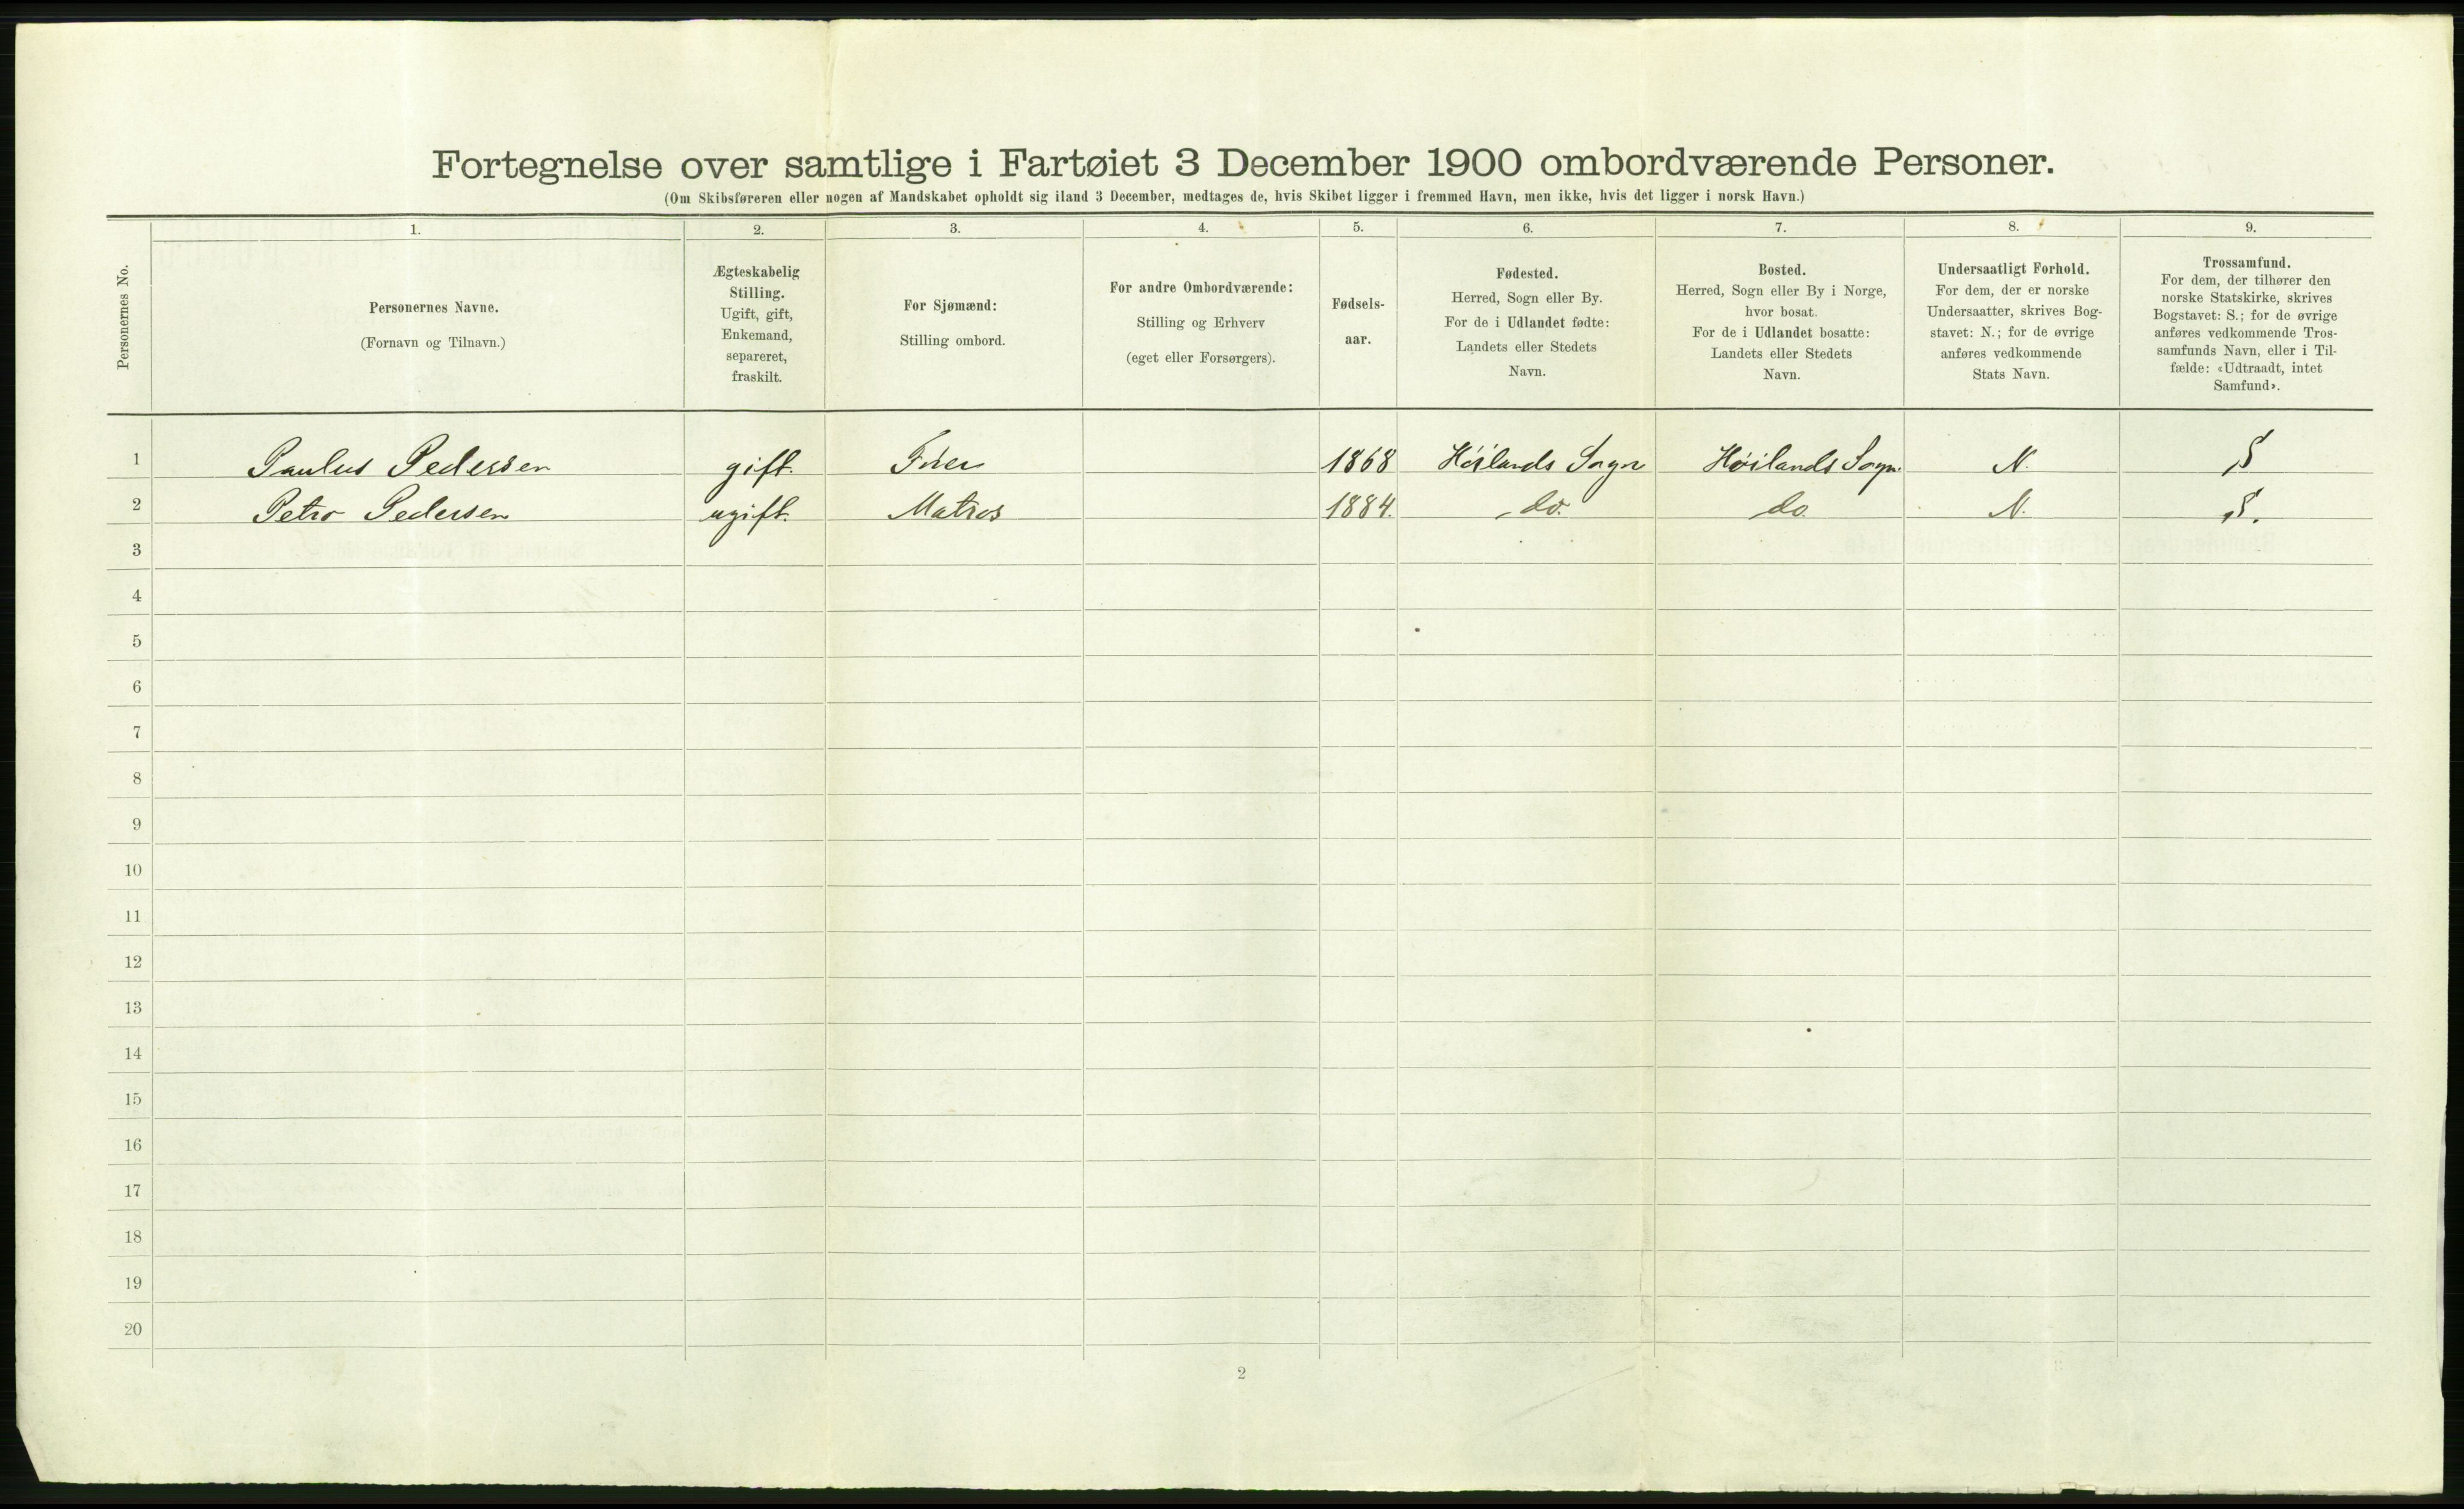 Fortegnelse over samtlige i Fartøiet 3 December 1900 ombordværende Personer.
(Om Skibsføreren eller nogen af Mandskabet opholdt sig iland 3 December, medtages de, hvis Skibet ligger i fremmed Havn, men ikke, hvis det ligger i norsk Havn.)
Personernes No.
1. 2. 3. 4. 5. 6. 7. 8. 9.
Personernes Navne.
(Fornavn og Tilnavn.)
Ægteskabelig
Stilling.
Ugift, gift,
Enkemand,
separeret,
fraskilt.
For Sjømænd:
Stilling ombord.
For andre Ombordværende:
Stilling og Erhverv
(eget eller Forsørgers).
Fødsels-
aar.
Fødested.
Herred, Sogn eller By.
For de i Udlandet fødte:
Landets eller Stedets
Navn.
Bosted.
Herred, Sogn eller By i Norge,
hvor bosat.
For de i Udlandet bosatte:
Landets eller Stedets
Navn.
Undersaatligt Forhold.
For dem, der er norske
Undersaatter, skrives Bog-
stavet: N.; for de øvrige
anføres vedkommende
Stats Navn.
Trossamfund.
For dem, der tilhører den
norske Statskirke, skrives
Bogstavet: S.; for de øvrige
anføres vedkommende Tros-
samfunds Navn, eller i Til-
fælde: «Udtraadt, intet
Samfund».
1 Paulus Pedersen gift. Fører 1868 Høilands Sogn Høilands Sogn. N. S
2 Petro Pedersen ugift. Matros 1884. do. do N. S.
3
4
5
6
7
8
9
10
11
12
13
14
15
16
17
18
19
20
2